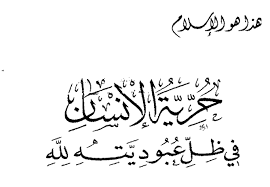 هذا هو الإسلام
حُرِّيَّةُ الإِنْسَانِ
فِي ظِلِّ عُبُودِيَّتِهِ لِلَّهِ